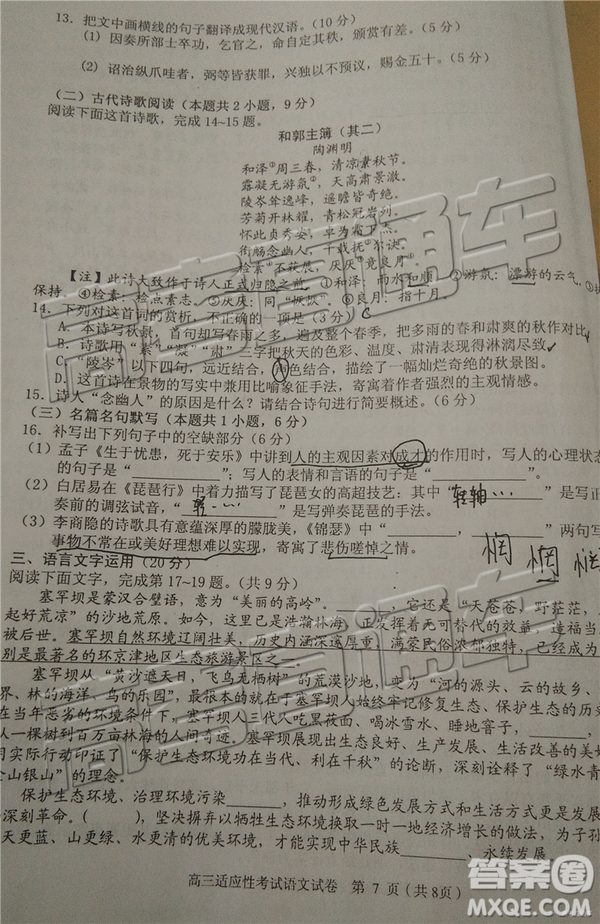 13. 把文中画横线的句子翻译成现代汉语。(10分)
(1) 因奏所部士卒功，乞官之，命自定其秩，颁赏有差。(5分)
(2) 诏治纵爪哇者，弼等皆获罪，兴独以不预议，赐金五十。(5分)
(二) 古代诗歌阅读（本题共2小题，9分）
阅读下面这首诗歌，完成14~15题。
和郭主簿（其二）
陶渊明
和泽①周三春，清凉素秋节。
露凝无游氛②，天高肃景澈。
陵岑耸逸峰，遥瞻皆奇绝。
芳菊开林耀，青松冠岩列。
怀此贞秀姿，卓为霜下杰。
衔觞念幽人，千载抚③尔诀。
检素④不获展，厌厌⑤竟良月⑥。
【注】此诗大致作于诗人正式归隐之前。①和泽：雨水和顺 ②游氛：漂游的云气
保持 ④检素：检点素志。⑤厌厌：同“恹恹”。⑥良月：指十月。
14. 下列对这首诗词的赏析，不正确的一项是（3分）
A. 本诗写秋景，首句却写春雨之多，遍及整个春季，把多雨的春和肃爽的秋作对比
B. 诗歌用“素”“凝”“肃”三字把秋天的色彩、温度、肃清的自然景象表现得淋漓尽致
C. “陵岑”以下四句，远近结合，色结合，描绘了一幅灿烂奇绝的秋景图。
D. 这首诗在景物的写实中兼用比喻象征手法，寄寓着作者强烈的主观情感。
15. 诗人“念幽人”的原因是什么？请结合诗句进行简要概述。(6分)
(三) 名篇名句默写（本题共1小题，6分）
16. 补写出下列句子中的空缺部分（6分）
(1) 孟子《生于忧患，死于安乐》中讲到人的主观因素对成才的作用时，写人的心理状态
的句子是“________”；写人的表情和言语的句子是“________”。
(2) 白居易在《琵琶行》中着力描写了琵琶女的高超技艺：其中“转轴…”是写正
奏前的调弦试音，“________”是写弹奏琵琶的手法。
(3) 李商隐的诗歌具有意蕴深厚的朦胧美，《锦瑟》中“________，________”两句写
事物不常在或美好理想难以实现，寄寓了悲伤嗟悼之情。
惘 惘
三、语言文字运用（20分）
阅读下面文字，完成第17~19题。(共9分)
塞罕坝是蒙汉合壁语，意为“美丽的高岭”。________，它还是“天苍苍，野茫茫，
起好荒凉”的沙地荒原。如今，这里已是浩瀚林海，正发挥着无可替代的生态效益，
被后世。塞罕坝自然环境辽阔壮美，历史内涵深邃厚重，满蒙民俗浓郁独特，已经成为
别是最著名的环京津地区生态旅游景区之一。
塞罕坝从“黄沙遮天日，飞鸟无栖树”的荒漠沙地，变为“河的源头、云的故乡、
界、林的海洋、鸟的乐园”，最根本的就在于塞罕坝人始终牢记修复生态、保护生态的历
在当年恶劣的环境条件下，塞罕坝的第一代建设者们吃黑莜面、喝冰雪水、睡地窨子，________
从一棵树到百万亩林海的人间奇迹。塞罕坝展现出生态良好、生产发展、生活改善的美
用实际行动印证了“保护生态环境功在当代、利在千秋”的论断，深刻诠释了“绿水青
金山银山”的理念。
保护生态环境、治理环境污染________，推动形成绿色发展方式和生活方式更是发展
深刻革命。(  )，坚决摒弃以牺牲生态环境换取一时一地经济增长的做法，为子孙
天更蓝、山更绿、水更清的优美环境，才能实现中华民族________、永续发展
高三适应性考试语文试卷 第 7 页（共8页）
高考直通车
高考直通车
高考直通车
答案圈
MXQE.COM